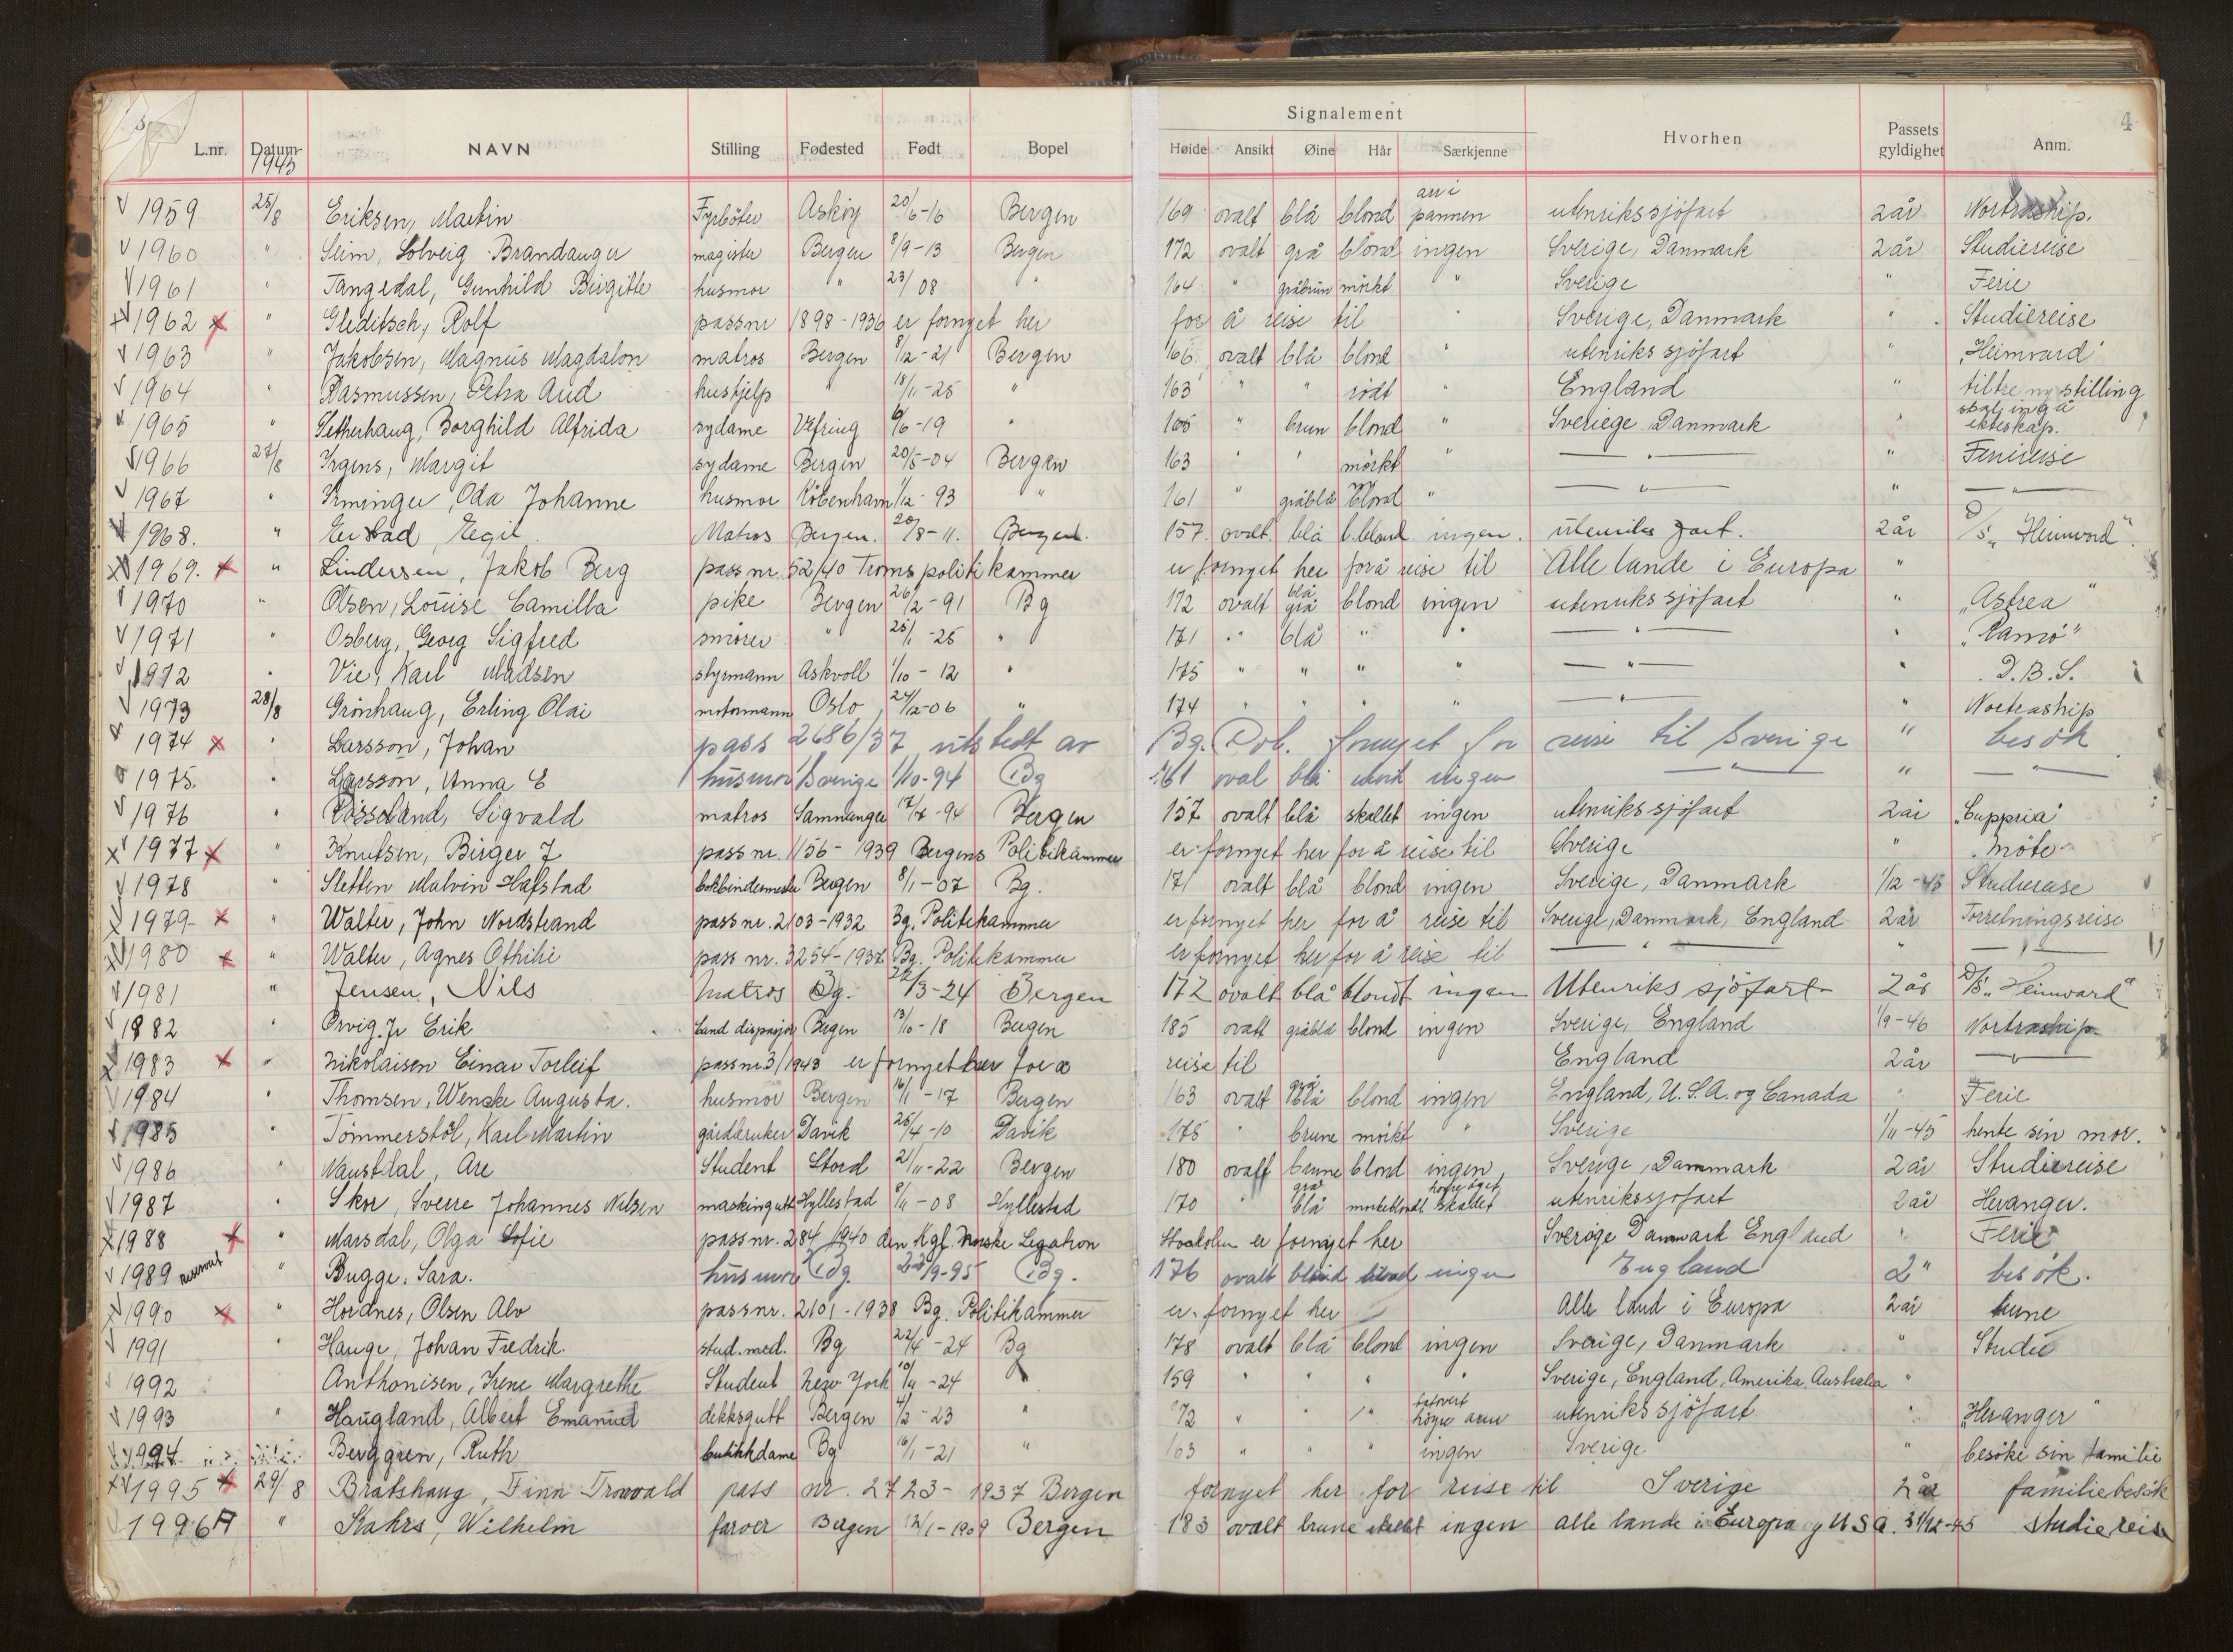 Signalement
L.nr. Datum NAVN Stilling Fødested Født Bopel Høide Ansikt Øine Hår Særkjenne Hvorhen Passets gyldighet Anm.
1945
4
1959 25/8 Eriksen, Martin Fyrböter Asköy 20/6-16 Bergen 169 ovalt blå blond arr i pannen utenrikssjöfart 2 år Nortraship.
1960 " Seim, Solveig Brandanger magister Bergen 8/9-13 Bergen 172 ovalt grå blond ingen Sverige, Danmark 2 år Studiereise
1961 " Tangedal, Gunhild Birgitte husmor " 23/ 08 " 164 " gråbrun mörkt " Sverige " Ferie
1962 x " Gleditsch, Rolf passnr 1898-1936 er fornyet her for å reise til Sverige, Danmark " Studiereise
1963 " Jakobsen, Magnus Magdalon matros Bergen 8/12-21 Bergen 166 ovalt blå blond " utenriks sjöfart " "Heimvard"
1964 " Rasmussen, Petra Aud hushjelp 18/11-25 " 163 " " rödt " England " tiltre ny stilling
1965 " Setherhaug, Borghild Alfrida sydame Vefring 6/6-19 " 165 " brun blond " Sveriege Danmark " skal inngå ekteskap.
1966 27/8 Irgens, Margit sydame Bergen 20/5-04 Bergen 163 " " mörkt " — " — " Feriereise
1967 " Irminger, Oda Johanne husmor Köbenhavn 1/12-93 " 161 " gråblå blond " — " — " — " —
1968. " Egil Matros Bergen. 20/8-11. Bergen. 157 ovalt. blå b.blond ingen. utenriks fart. 2 år D/S "Heimvard".
1969. x " Lindersen, Jakob Berg pass nr. 52/40 Troms politikammer er fornyet her for å reise til Alle lande i Europa "
1970 " Olsen, Louise Camilla pike Bergen 26/12-91 Bg 172 ovalt blå grå blond ingen utenriks sjöfart " "Astrea"
1971 " Osberg, Georg Sigfred smörer " 25/1-25 " 171 " blå " " — " — " "Ramö"
1972 " Vie, Karl Madsen styrmann Askvoll 1/10-12 " 175 " " " " — " — " D.B.S.
1973 28/8 Grönhaug, Erling Olai motormann Oslo 24/12-06 " 174 " " " " — " — " Nortraship
1974 x " Larsson, Johan pass 2686/37 utstedt av Bg. Pol. fornyet for reise til Sverige " besök
1975. " Larsson, Anna E husmor Sverige 1/10-94 Bg 161 oval blå mörk ingen — " — " — " —
1976 " Rösseland, Sigvald matros Samnanger 17/7-94 Bergen 157 ovalt blå skallet ingen utenriks sjöfart 2 år "Cuppria"
1977 x " Knutsen, Birger J pass nr. 1156-1939 Bergens Politikammer er fornyet her for å reise til Sverige " möte
1978 " Sletten Malvin Hafstad bokbindermester Bergen 8/1-07 Bg. 171 ovalt blå blond ingen Sverige, Danmark 1/12-45 Studiereise
1979 x " Walter, John Nordstrand pass nr. 2103-1932 Bg. Politikammer er fornyet her for å reise til Sverige, Danmark, England 2 år Forretningsreise
1980 x " Walter, Agnes Othilie pass nr. 3254-1937 Bg. Politikammer er fornyet her for å reise til — " — " — " —
1981 " Jensen, Nils Matros Bg. 22/3-24 Bergen 172 ovalt blå blondt ingen Utenriks sjöfart 2 år D/S "Heimvard"
1882 " Orvig. Jr Erik Bergen 13/10-18 Bergen 185 ovalt gråblå blond ingen Sverige, England 1/9-46 Nortraship
1983 x " Nikolaisen Einar Torleif pass nr 3/1943 er fornyet her for å reise til England 2 år — " —
1984 " Thomsen, Wenche Augusta. husmor Bergen 16/11-17 Bergen 163 ovalt grå blå blond ingen England, U.S.A. og Canada " Ferie
1985 " Tömmerstöl, Karl Martin gårdbruker Davik 25/4-10 Davik 175 " brune mörkt " Sverige 1/11-45 hente sin mor.
1986 " Naustdal, Are Student Stord 2/11-22 Bergen 180 ovalt brune blond ingen Sverige, Danmark 2 år Studiereise
1987 " Skor, Sverre Johannes Nilsen maskingutt Hyllestad 8/11-08 Hyllestad 170 " grå blå mörkeblondt skallet utenrikssjöfart 2 år Heranger.
1988 x " Marsdal, Olga Sofie pass nr. 284 1940 den Kgl. Norske Legation Stockholm er fornyet her Sverige Danmark England " Ferie
1989 " Bugge, Sara. husmor Bg 25/9-95 Bg. 176 ovalt blond ingen England 2 " besök.
1990 x " Hordnes, Olsen Alv pass nr. 2101-1938 Bg. Politikammer er fornyet her Alle land i Europa 2 år
1991 " Hauge, Johan Fredrik. stud. med. Bg 22/4-24 Bg 178 ovalt blå blond ingen Sverige, Danmark " Studie
1992 Anthonisen, Irene Margrethe Student New York 10/11-24 " 159 " " " " Sverige, England, Amerika, Australia "
1993 " Haugland, Albert Emanuel dekksgutt Bergen 4/2-23 " 172 " " " tatovert höyre arm utenriks sjöfart " "Heranger"
1994 Berggren, Ruth butikkdame Bg 16/1-21 " 163 " " " ingen Sverige " besöke sin familie
1995 x 29/8 Bratshaug, Finn Tronvald pass nr. 2723-1937 Bergen fornyet her for reise til Sverige 2 år familiebesök
1996 A " Stahrs, Wilhelm farver Bergen 12/1-1909 Bergen 183 ovalt brune skallet ingen alle lande i Europa og USA. 31/12-45 studiereise